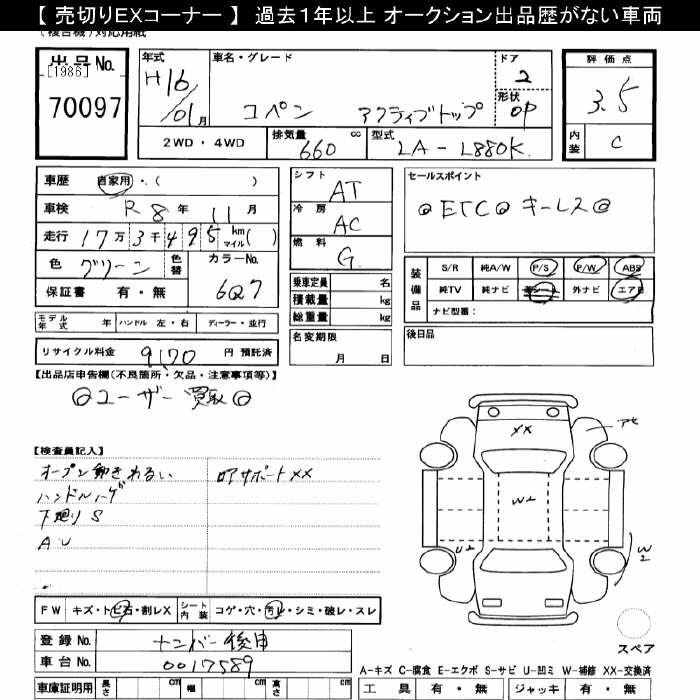 【 売切りEXコーナー 】 過去１年以上 オークション出品歴がない車両
(複合機)対応用紙
出品No.
[1986]
70097
年式
H16/01月
車名・グレード
コペン アクティブトップ
ドア
2
形状
OP
評価点
3.5
内装
C
2WD・4WD
排気量
660
cc
型式
LA-L880K
車歴 自家用・( )
車検 R8年 11月
走行 17万3千495 km マイル( )
色 グリーン
色替
カラーNo.
6Q7
保証書 有・無
モデル年式 年 ハンドル 左・右 ディーラー・並行
リサイクル料金 9170 円 預託済
シフト
AT
冷房
AC
燃料
G
乗車定員 名
積載量 kg
総重量 kg
名変期限
月 日
セールスポイント
◎ETC◎キーレス◎
装備品
S/R 純A/W P/S P/W ABS
純TV 純ナビ 革シート 外ナビ エアB
ナビ型番：
後日品
【出品店申告欄(不良箇所・欠品・注意事項等)】
◎ユーザー買取◎
【検査員記入】
オープン動きわるい
ハンドルハゲ
下廻りS
A・U
ロアサポートXX
XX
アセ
W2
U2
W2
スペア
FW キズ・トビ石・割レX
シート内装 コゲ・穴・汚レ・シミ・破レ・スレ
登録No. ナンバー後日
車台No. 0017589
A-キズ C-腐食 E-エクボ S-サビ U-凹ミ W-補修 XX-交換済
車庫証明用 長さ cm 幅 cm 高さ cm
工具 有・無 ジャッキ 有・無